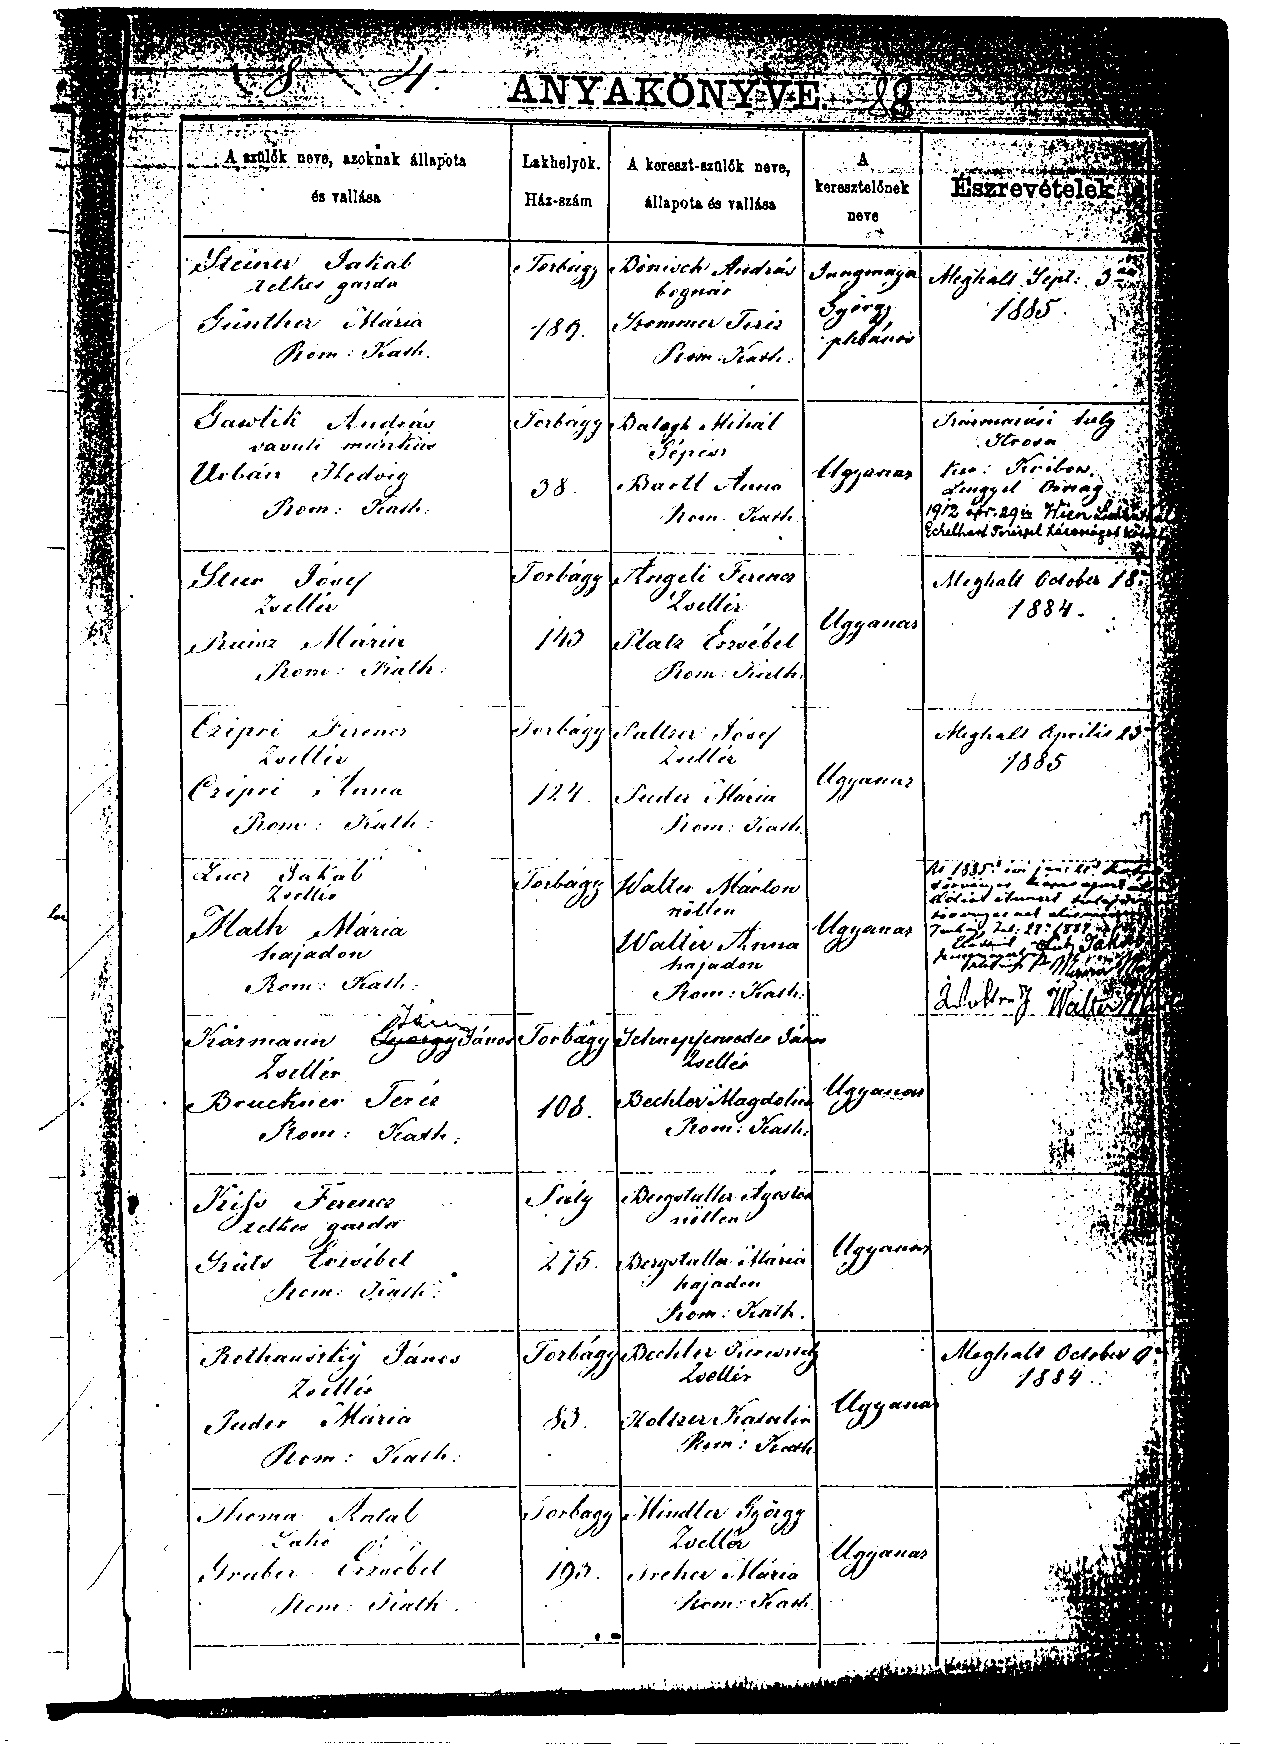 1884. ANYAKÖNYVE. 88
A szülők neve, azoknak állapota
és vallása
Lakhelyök.
Ház-szám
A kereszt-szülők neve,
állapota és vallása
A
keresztelőnek
neve
Észrevételek
Steiner Jakab
telkes gazda
Günther Mária
Rom: Kath.
Torbágy
189.
Bönisch András
bognár
Szommer Teréz
Rom: Kath.
Jungmayer
György
plébános
Meghalt Sept: 3án
1885.
Gawlik András
vasuti munkás
Urbán Hedvig
Rom: Kath.
Torbágy
38.
Balogh Mihál
Gépész
Bartl Anna
Rom. Kath.
Ugyanaz
Származási hely
Ker:
Lengyel Ország
1912 ápr. 29én Wien
Steer Jósef
Zsellér
Rainz Mária
Rom: Kath:
Torbágy
143
Angeli Ferencz
Zsellér
Platz Erzsébet
Rom: Kath.
Ugyanaz
Meghalt October 18.
1884.
Czipri Ferencz
Zsellér
Czipri Anna
Rom: Kath:
Torbágy
124.
Jósef
Zsellér
Mária
Rom: Kath.
Ugyanaz
Meghalt Április 23
1885
Lucz Jakab
Zsellér
Math Mária
hajadon
Rom: Kath:
Torbágy
Walter Márton
nőtlen
Walter Anna
hajadon
Rom: Kath:
Ugyanaz
Az 1885 évi
Jakab
Mária
Walter
Kármann György János
Zsellér
Bruckner Teréz
Rom: Kath:
Torbágy
108.
János
Zsellér
Bechler Magdolna
Rom: Kath.
Ugyanaz
Kiss Ferencz
telkes gazda
Erzsébet
Rom: Kath:
Páty
275.
Bergstaller Ágoston
nőtlen
Bergstaller Mária
hajadon
Rom: Kath.
Ugyanaz
Rothauszky János
Zsellér
Mária
Rom: Kath:
Torbágy
83.
Bechler
Zsellér
Holtzer Katalin
Rom: Kath.
Ugyanaz
Meghalt October 9
1884.
Thoma Antal
Lakó
Gruber Erzsébet
Rom: Kath.
Torbágy
193.
Mindler György
Zsellér
Mária
Rom: Kath.
Ugyanaz